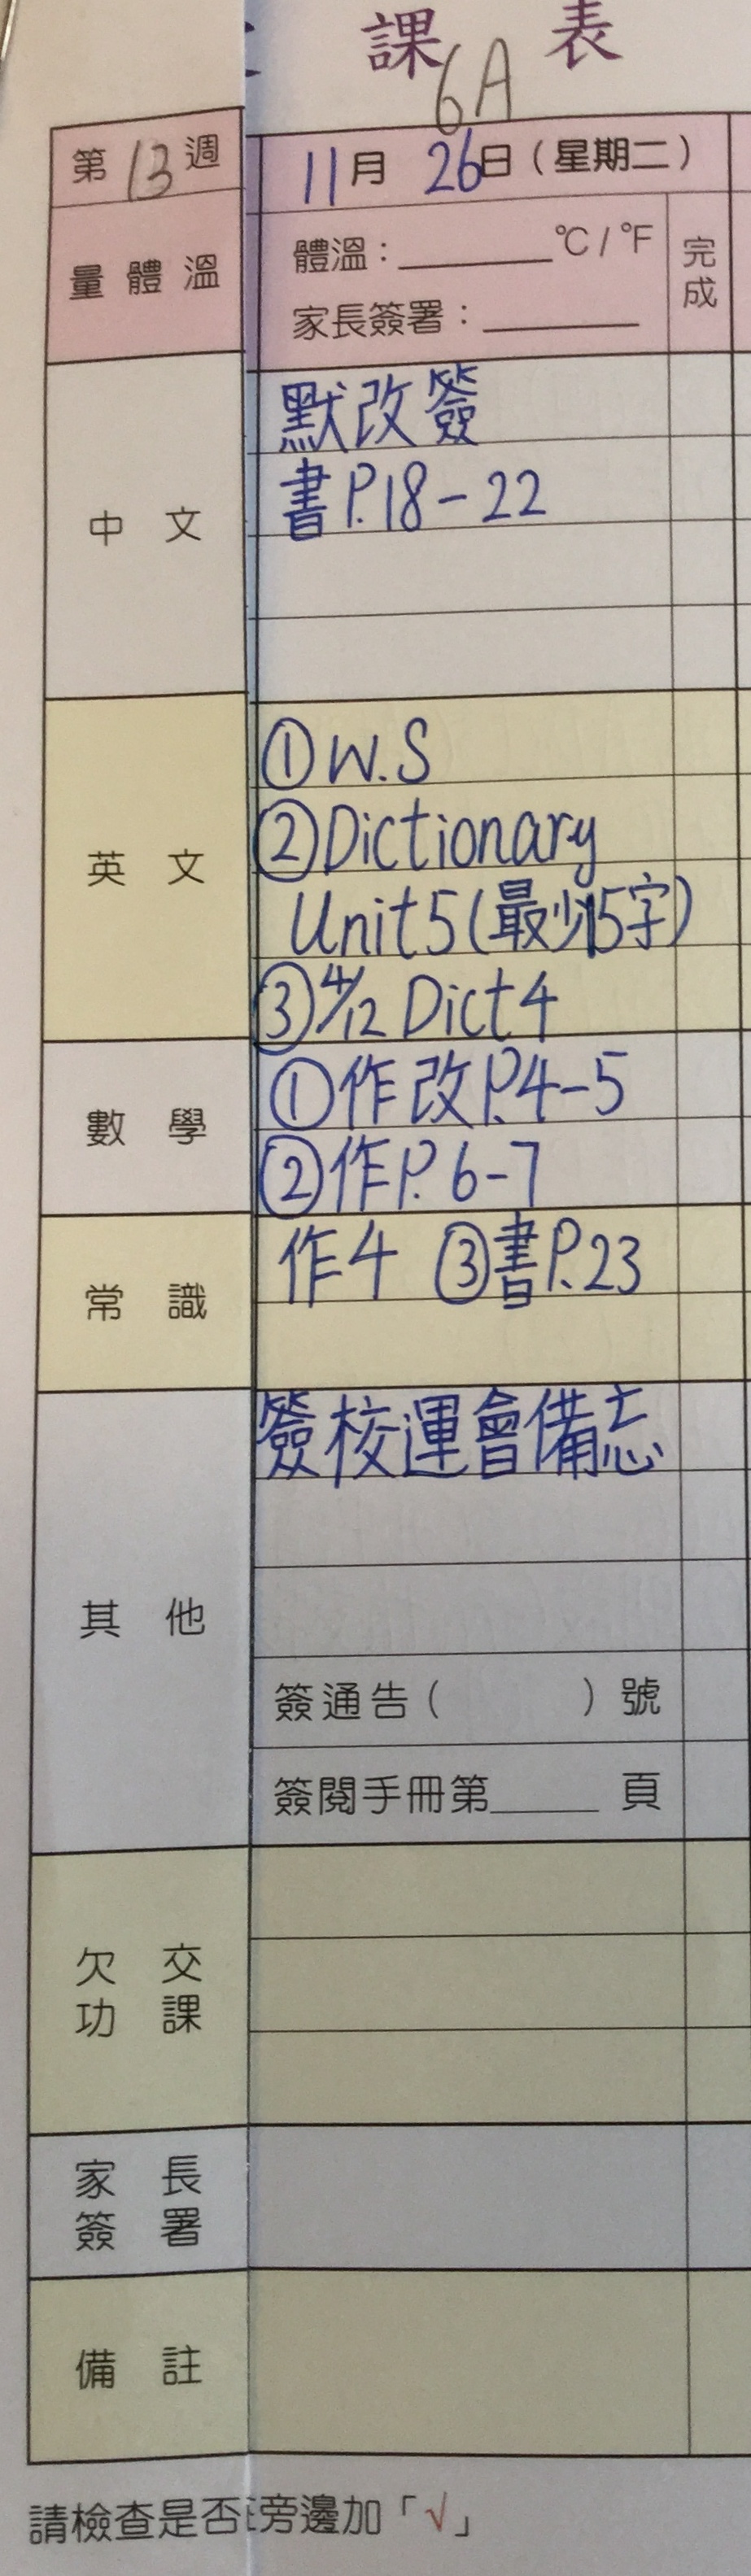 課 表
6A
第 13 週
11月 26日(星期二)
量 體 溫
體溫:______°C / °F
家長簽署:______
完成
中 文
默改簽
書P.18-22
英 文
①W.S
②Dictionary
Unit5(最少15字)
③4/12 Dict 4
數 學
①作改P.4-5
②作P.6-7
常 識
作4 ③書P.23
其 他
簽校運會備忘
簽通告( )號
簽閱手冊第______頁
欠 交
功 課
家 長
簽 署
備 註
請檢查是否
旁邊加「√」